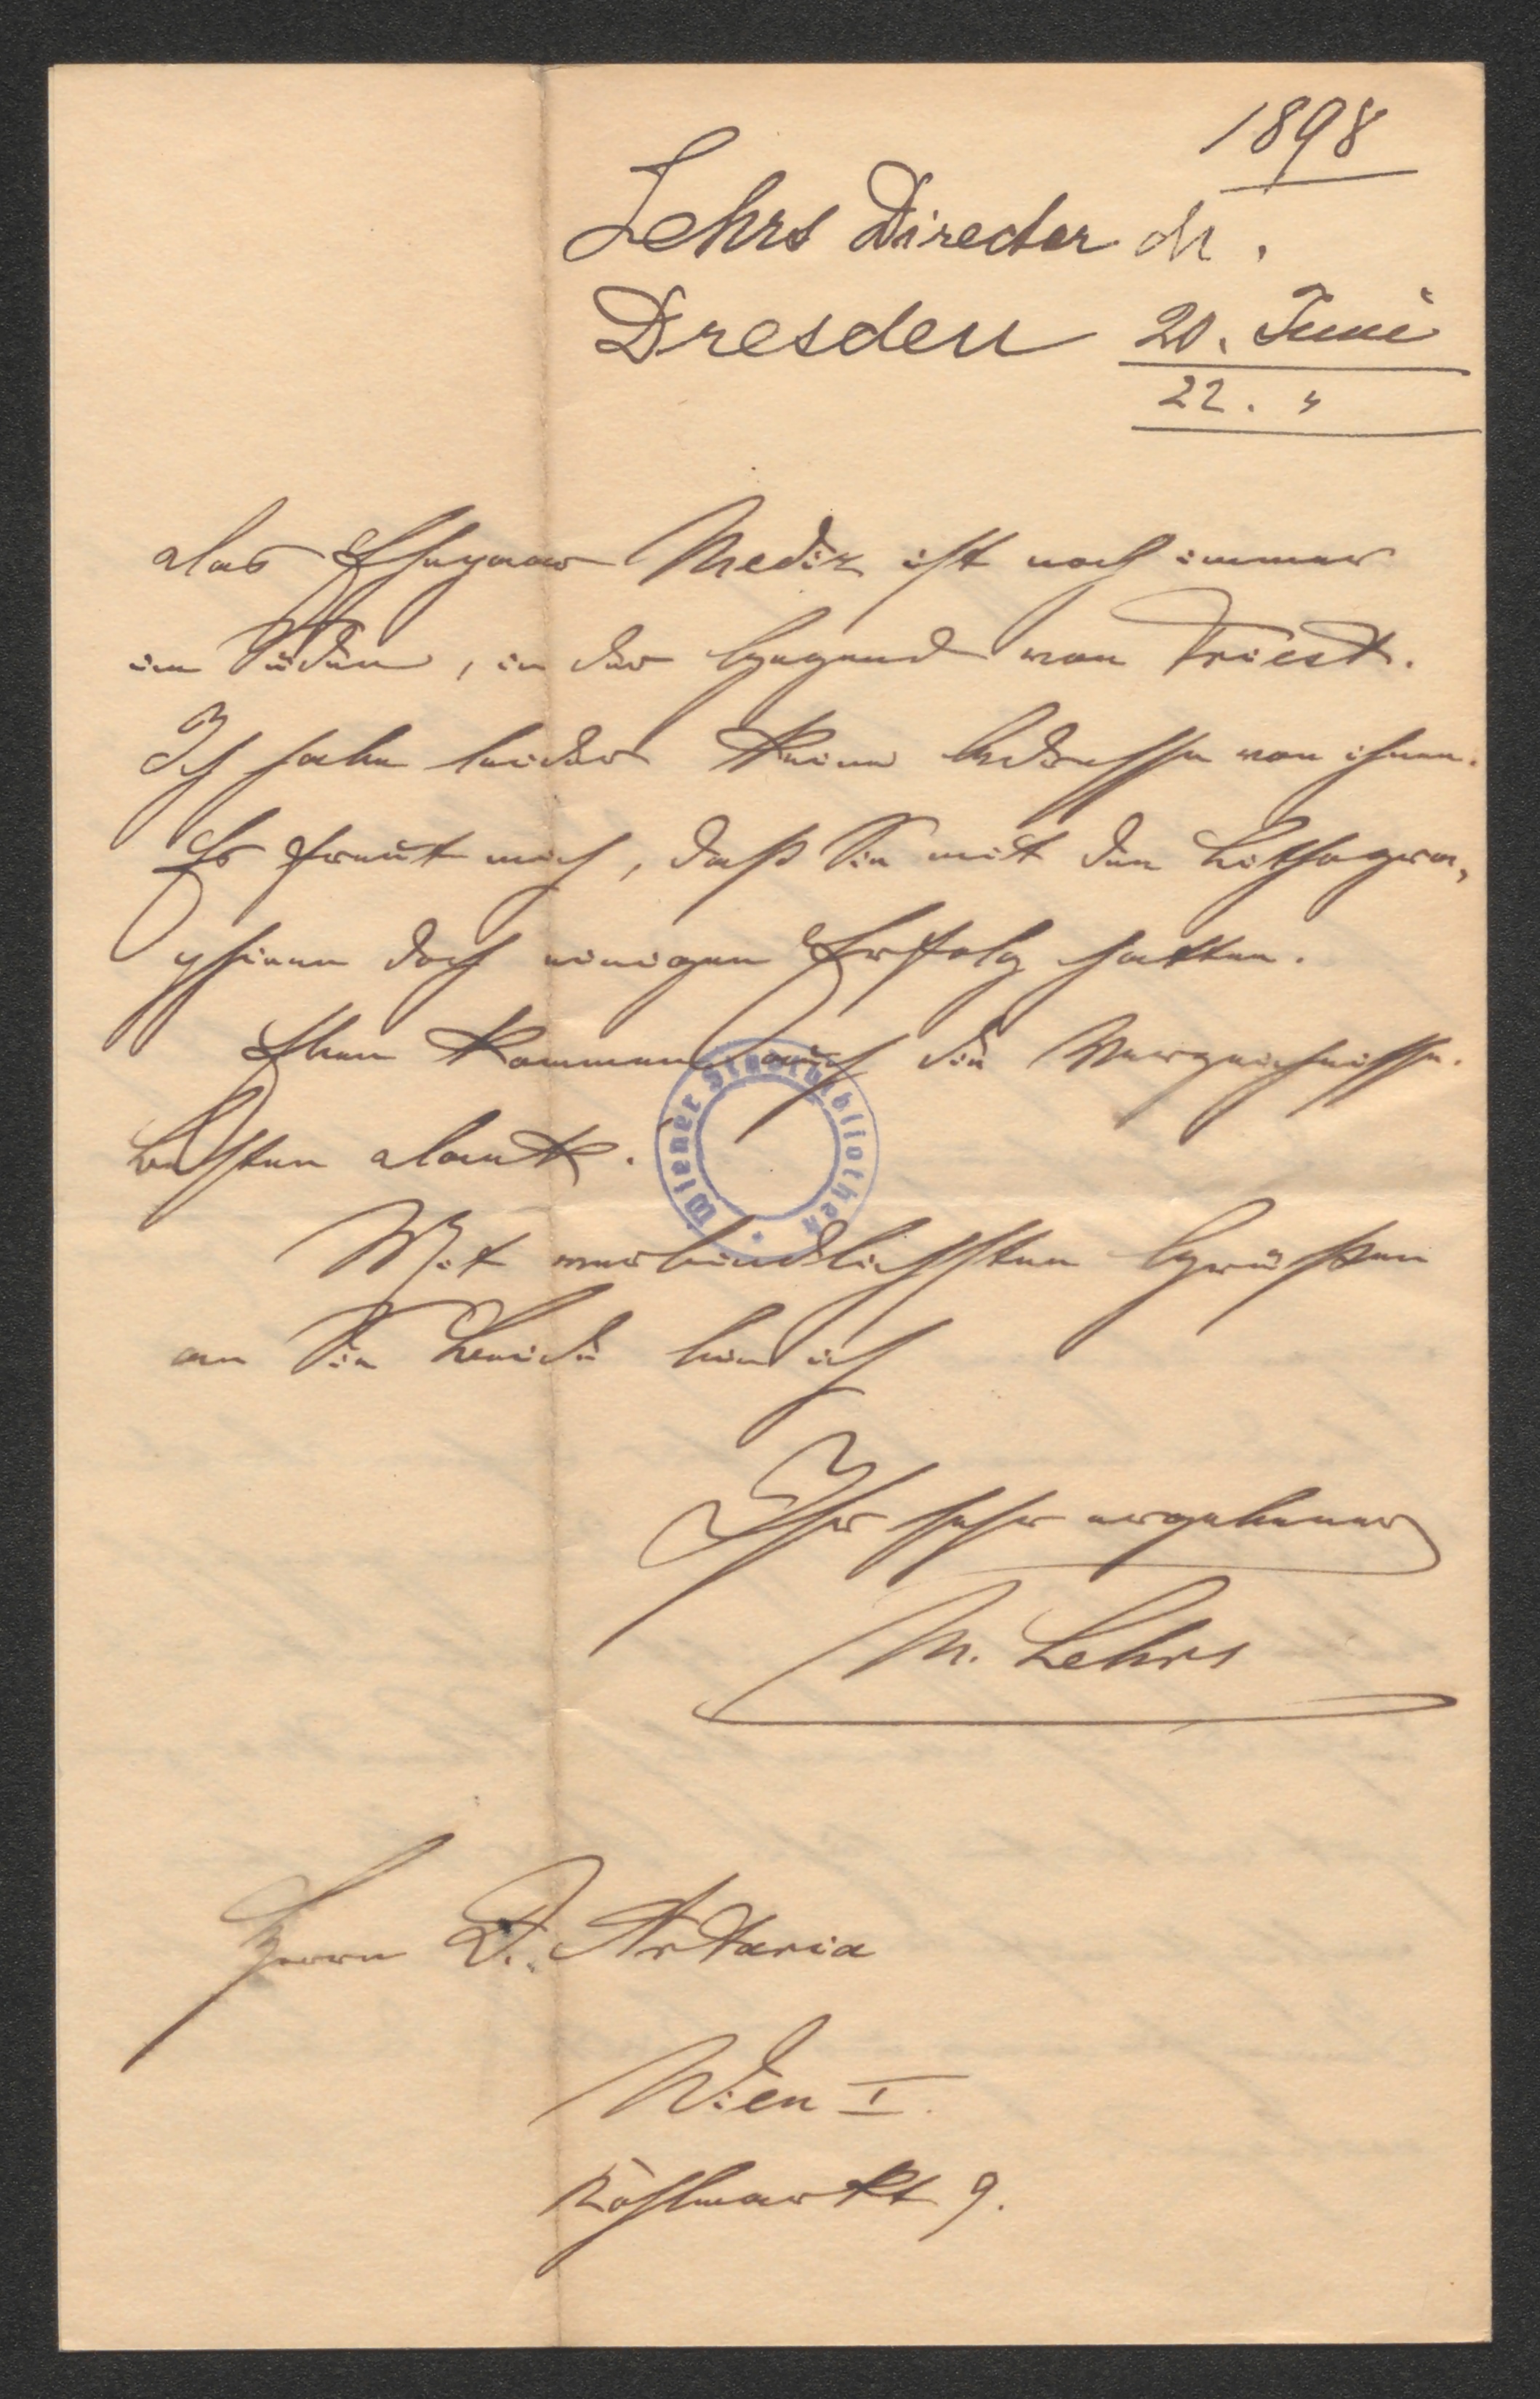 1898
Lehrs Director
Dresden 20. Juni
22. "
Das Ehepaar Mediz ist noch immer
im Süden, in der Gegend von Triest.
Ich habe leider keine Adresse von ihnen.
Es freut mich, daß Sie mit den Lithogra-
phieen doch einigen Erfolg hatten.
Eben kommen auch die Verzeichnisse.
Besten Dank.
Wiener Stadtbibliothek
Mit verbindlichsten Grüßen
an Sie beide bin ich
Ihr sehr ergebener
M. Lehrs
Herrn D. Artaria
Wien I.
Kohlmarkt 9.